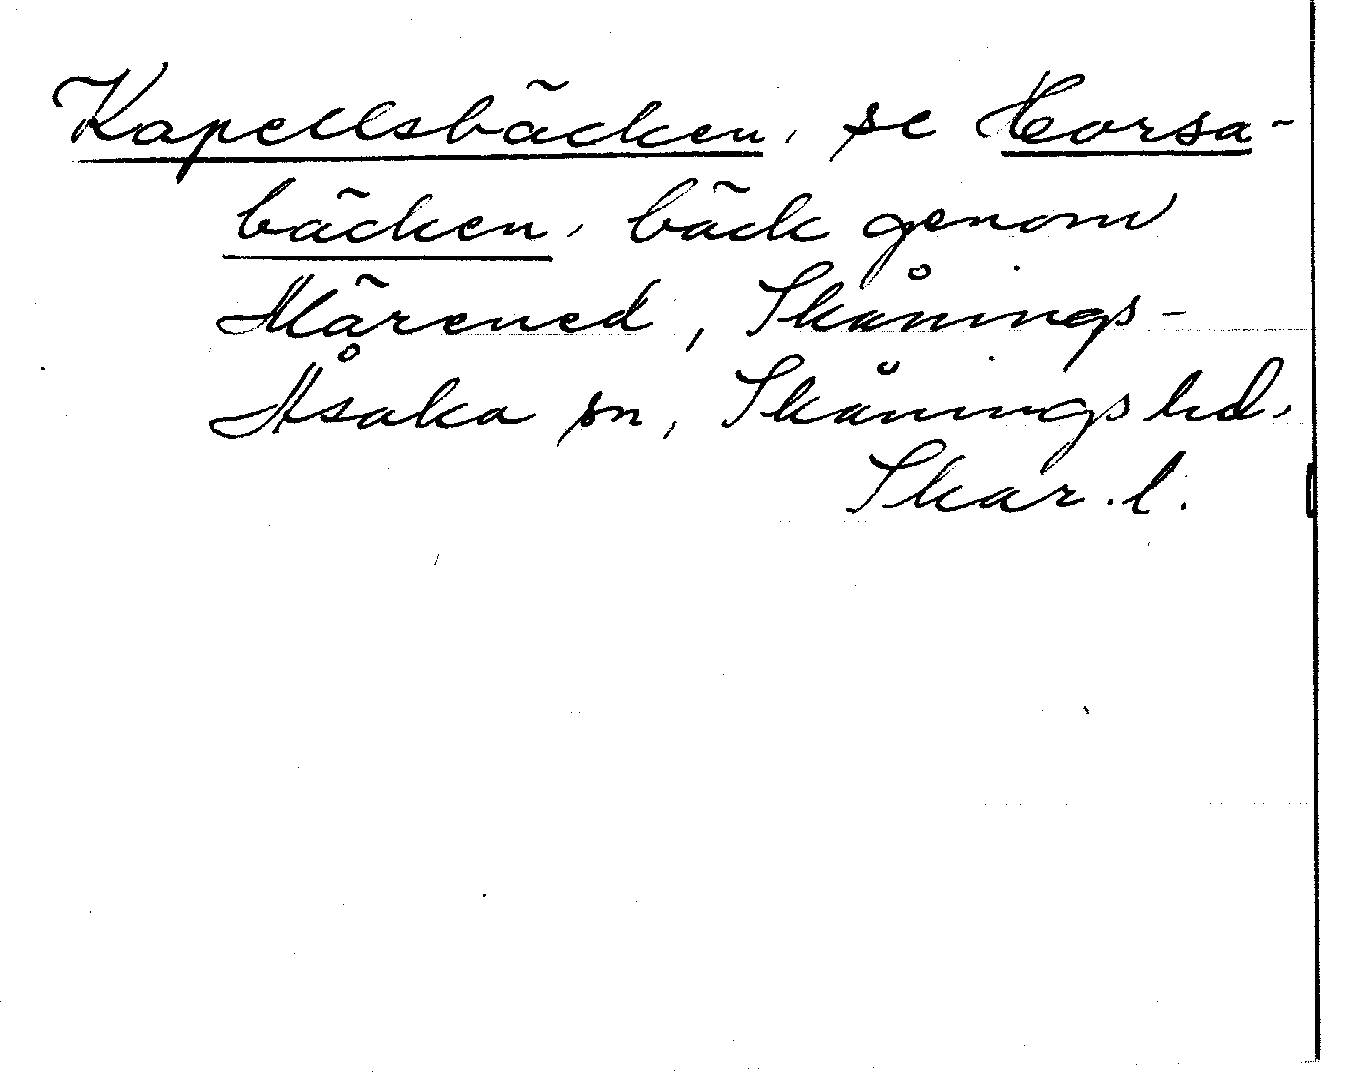 Kapellsbäcken, se Horsa-
bäcken, bäck genom
Märened, Skånings-
Åsaka sn, Skånings hd.
Skar. l.